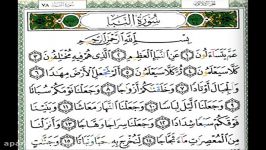 سُورَةُ النَّبَإِ
بِسْمِ اللَّهِ الرَّحْمَٰنِ الرَّحِيمِ
عَمَّ يَتَسَاءَلُونَ ١ عَنِ النَّبَإِ الْعَظِيمِ ٢ الَّذِي هُمْ فِيهِ مُخْتَلِفُونَ ٣
كَلَّا سَيَعْلَمُونَ ٤ ثُمَّ كَلَّا سَيَعْلَمُونَ ٥ أَلَمْ نَجْعَلِ الْأَرْضَ مِهَادًا ٦
وَالْجِبَالَ أَوْتَادًا ٧ وَخَلَقْنَاكُمْ أَزْوَاجًا ٨ وَجَعَلْنَا نَوْمَكُمْ سُبَاتًا ٩
وَجَعَلْنَا اللَّيْلَ لِبَاسًا ١٠ وَجَعَلْنَا النَّهَارَ مَعَاشًا ١١ وَبَنَيْنَا
فَوْقَكُمْ سَبْعًا شِدَادًا ١٢ وَجَعَلْنَا سِرَاجًا وَهَّاجًا ١٣ وَأَنزَلْنَا
مِنَ الْمُعْصِرَاتِ مَاءً ثَجَّاجًا ١٤ لِنُخْرِجَ بِهِ حَبًّا وَنَبَاتًا ١٥